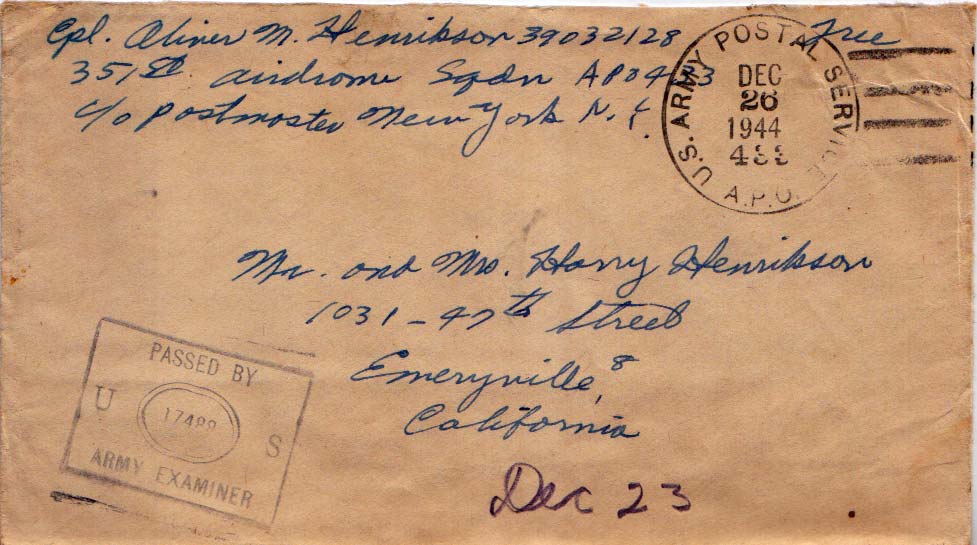 Cpl. Aliner M. Henrikson 39032128 Free
351st. airdrome Sqdn APO 433
c/o Postmaster New York N.Y.
U.S. ARMY POSTAL SERVICE
DEC
26
1944
433
A.P.O.
Mr. and Mrs. Harry Henrikson
1031-47th Street
Emeryville, 8
California
PASSED BY
U S
ARMY EXAMINER
Dec 23